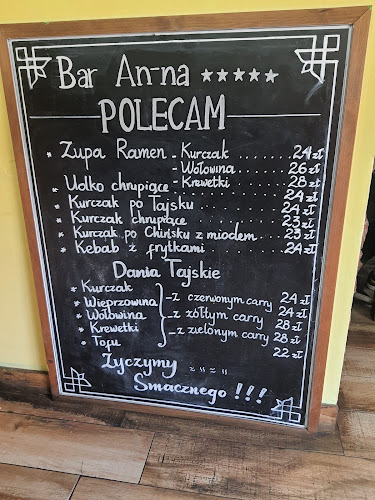 Bar An-na
POLECAM
* Zupa Ramen - Kurczak ........ 24 zł
- Wołowina ........ 26 zł
- Krewetki ........ 28 zł
* Udko chrupiące ........ 24 zł
* Kurczak po Tajsku ........ 24 zł
* Kurczak chrupiące ........ 23 zł
* Kurczak po Chińsku z miodem .... 23 zł
* Kebab z frytkami ........ 24 zł
Dania Tajskie
* Kurczak
* Wieprzowna - z czerwonym carry 24 zł
* Wołowina - z żółtym carry 24 zł
* Krewetki - z zielonym carry 28 zł
28 zł
* Tofu 22 zł
Życzymy
Smacznego !!!